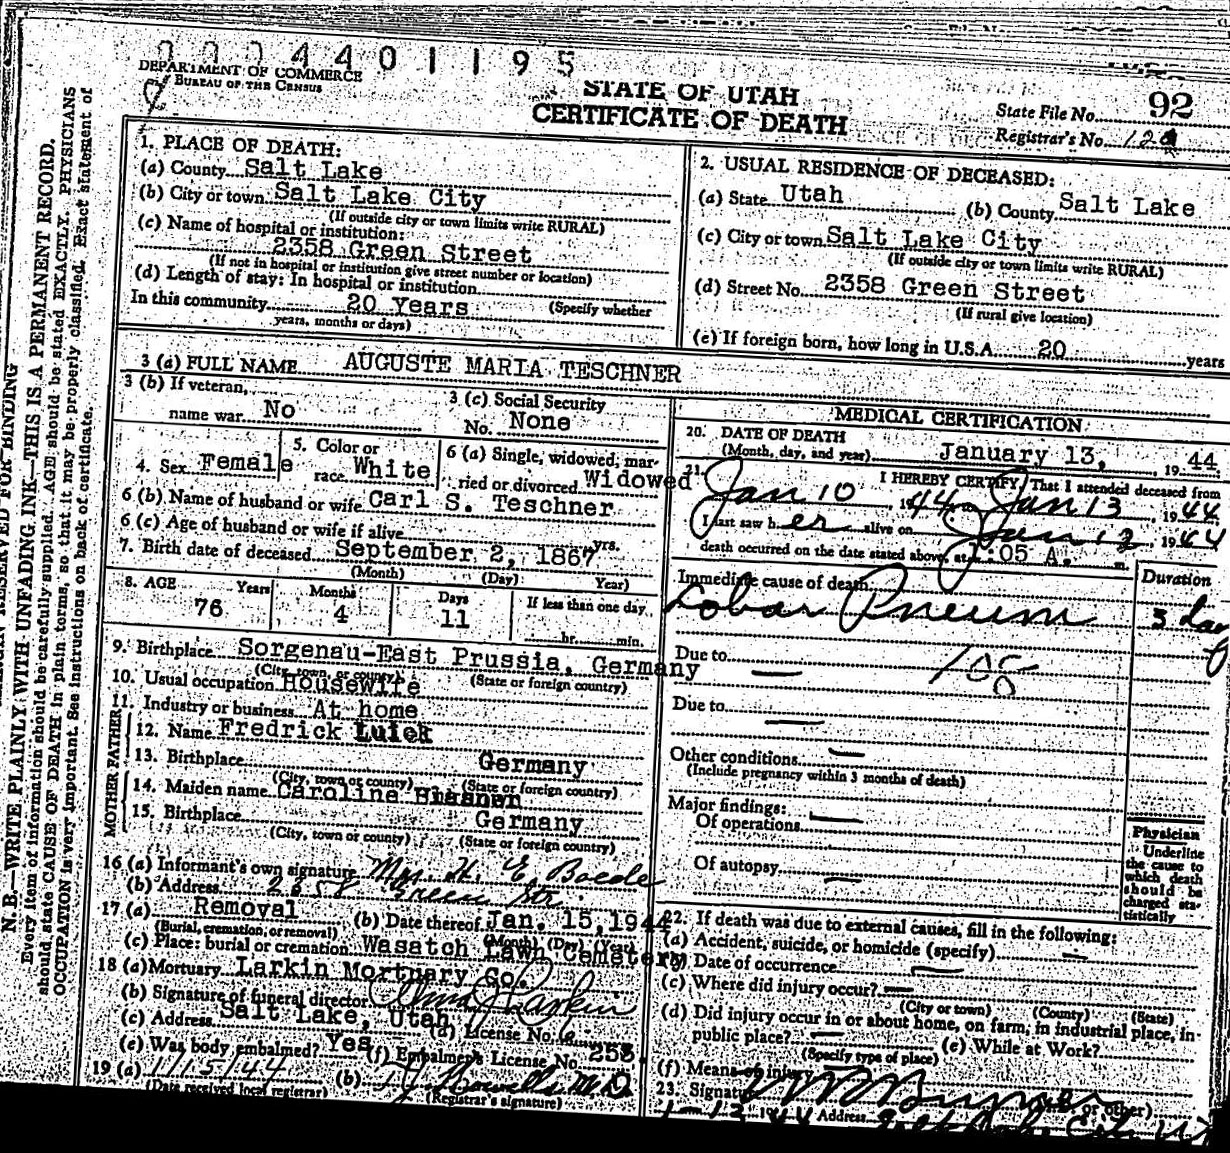 0004401195
DEPARTMENT OF COMMERCE
BUREAU OF THE CENSUS
STATE OF UTAH
CERTIFICATE OF DEATH
State File No. 92
Registrar's No.
N. B.—WRITE PLAINLY, WITH UNFADING INK—THIS IS A PERMANENT RECORD.
Every item of information should be carefully supplied. AGE should be stated EXACTLY. PHYSICIANS
should state CAUSE OF DEATH in plain terms, so that it may be properly classified. Exact statement of
OCCUPATION is very important. See instructions on back of certificate.
1. PLACE OF DEATH:
(a) County Salt Lake
(b) City or town Salt Lake City
(If outside city or town limits write RURAL)
(c) Name of hospital or institution:
2358 Green Street
(If not in hospital or institution give street number or location)
(d) Length of stay: In hospital or institution
In this community 20 Years (Specify whether
years, months or days)
2. USUAL RESIDENCE OF DECEASED:
(a) State Utah (b) County Salt Lake
(c) City or town Salt Lake City
(If outside city or town limits write RURAL)
(d) Street No. 2358 Green Street
(If rural give location)
(e) If foreign born, how long in U.S.A. 20 years
3 (a) FULL NAME AUGUSTE MARIA TESCHNER
3 (b) If veteran,
name war No
3 (c) Social Security
No. None
4. Sex Female
5. Color or
race White
6 (a) Single, widowed, mar-
ried or divorced Widowed
6 (b) Name of husband or wife Carl S. Teschner
6 (c) Age of husband or wife if alive yrs.
7. Birth date of deceased September 2, 1867
(Month) (Day) Year)
8. AGE Years Months Days If less than one day
76 4 11 hr. min.
9. Birthplace Sorgenau-East Prussia, Germany
(City, town or county) (State or foreign country)
10. Usual occupation Housewife
11. Industry or business At home
FATHER
12. Name Fredrick
13. Birthplace Germany
(City, town or county) (State or foreign country)
MOTHER
14. Maiden name Caroline
15. Birthplace Germany
(City, town or county) (State or foreign country)
16 (a) Informant's own signature Mrs. H. E. Boede
(b) Address 2358 Green Str.
17 (a) Removal (b) Date thereof Jan. 15, 1944
(Burial, cremation, or removal) (Month) (Day) (Year)
(c) Place: burial or cremation Wasatch Lawn Cemetery
18 (a) Mortuary Larkin Mortuary Co.
(b) Signature of funeral director Alma J Larkin
(c) Address Salt Lake, Utah (d) License No. 6
(e) Was body embalmed? Yes (f) Embalmer's License No. 253
19 (a) 1/15/44 (b) M.D.
(Date received local registrar) (Registrar's signature)
MEDICAL CERTIFICATION
20. DATE OF DEATH
(Month, day, and year) January 13, 1944
21. I HEREBY CERTIFY, That I attended deceased from
Jan 10, 1944, to Jan 13, 1944
I last saw her alive on Jan 12, 1944
death occurred on the date stated above, at :05 A. m.
Immediate cause of death Duration
Lobar Pneum 3 day
Due to —
108
Due to —
Other conditions —
(Include pregnancy within 3 months of death)
Major findings:
Of operations —
Of autopsy —
Physician
Underline
the cause to
which death
should be
charged sta-
tistically
22. If death was due to external causes, fill in the following:
(a) Accident, suicide, or homicide (specify) —
(b) Date of occurrence —
(c) Where did injury occur? —
(City or town) (County) (State)
(d) Did injury occur in or about home, on farm, in industrial place, in
public place? — (e) While at Work?
(Specify type of place)
(f) Means of injury
23. Signature or other)
1-13 1944 Address Salt Lake City Ut